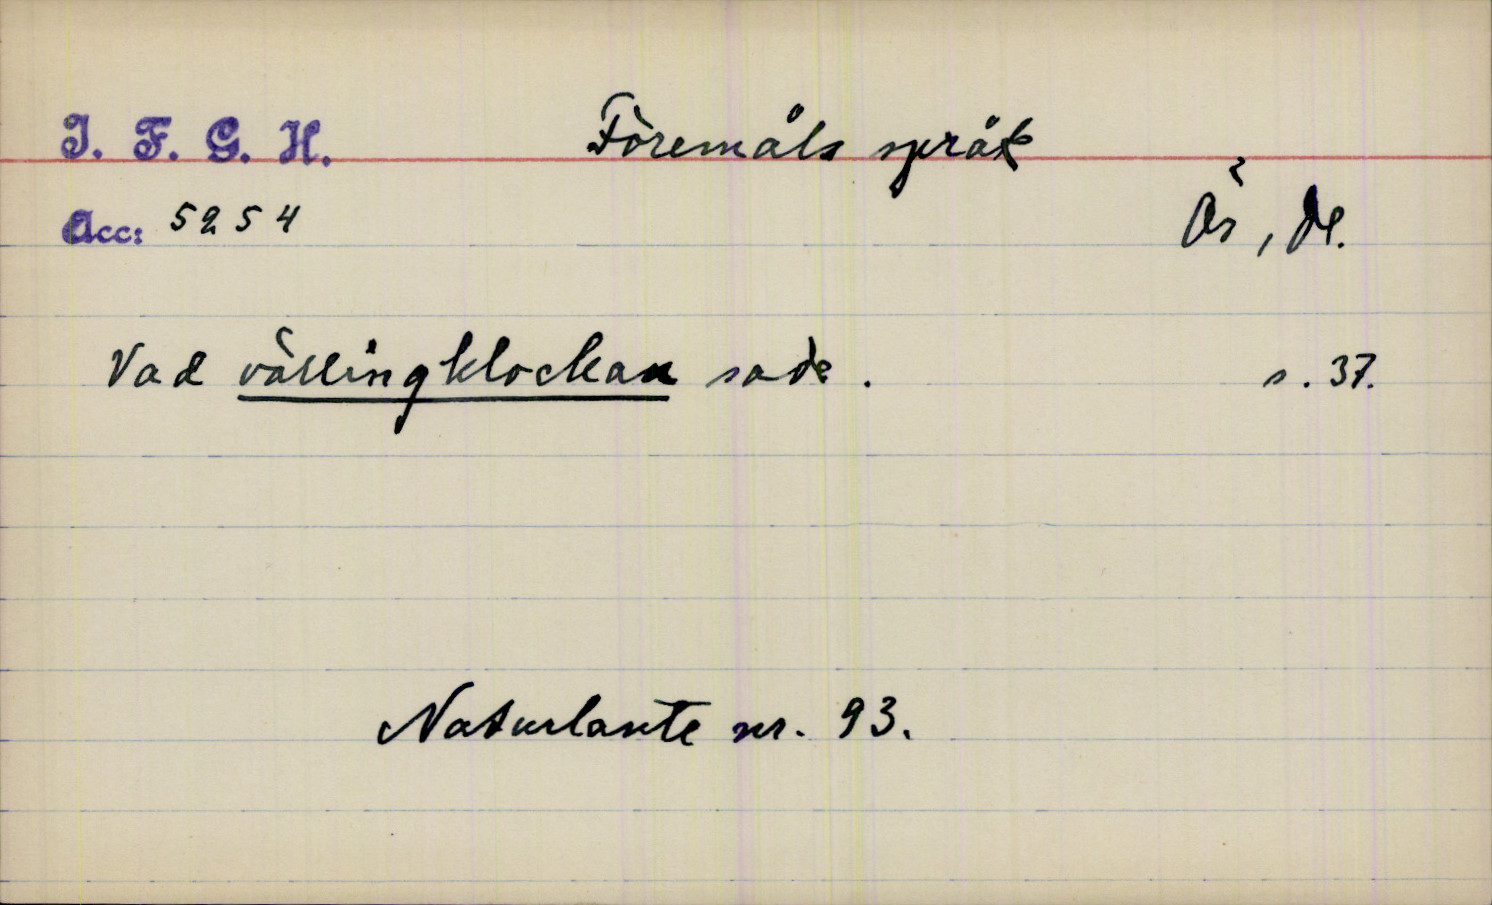 I. F. G. H. Föremåls språk
Acc: 5254 Ör, Dl.
Vad vällingklockan sade. s. 37.
Naturlaute nr. 93.